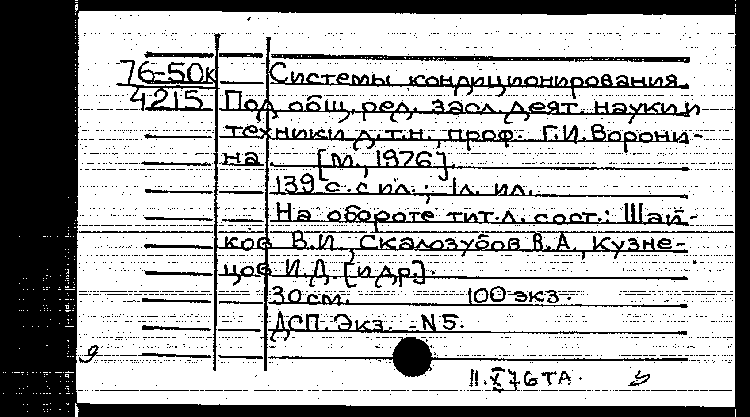 76-50к Системы кондиционирования.
4215 Под общ. ред. засл. деят. науки и
техники д.т.н., проф. Г.И. Ворони-
на [М., 1976].
139 с. с ил.; 1 л. ил.
На обороте тит. л. сост.: Шай-
ков В.И., Скалозубов В.А., Кузне-
цов И.Д. [и др.].
30 см. 100 экз.
ДСП. Экз. N 5.
11.X 76 ТА.